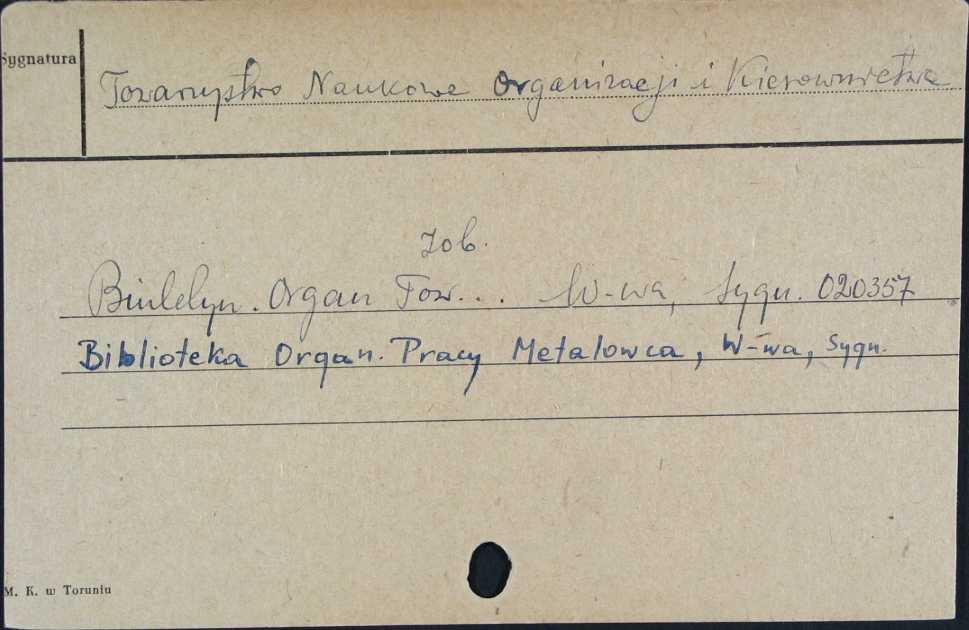 Sygnatura
Towarzystwo Naukowe Organizacji i Kierownictwa
Zob.
Biuletyn. Organ Tow... W-wa, Sygn. 020357
Biblioteka Organ. Pracy Metalowca, W-wa, Sygn.
M. K. w Toruniu